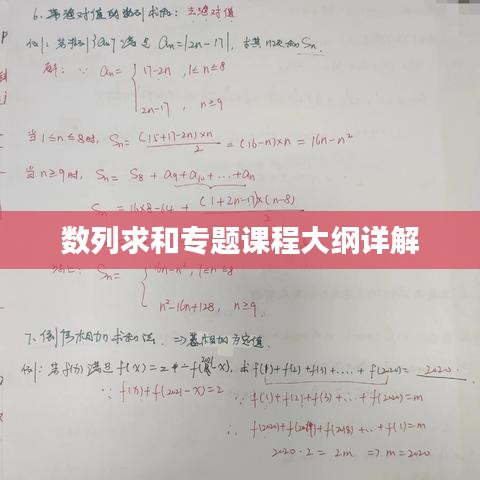 6、带绝对值的数列求和：去绝对值
例1：若数列{an}满足 an=|2n-17|，求其前n项和Sn.
解：∵ an= { 17-2n , 1≤n≤8
2n-17 , n≥9
当1≤n≤8时，Sn= (15+17-2n)×n / 2 = (16-n)×n = 16n-n²
当n≥9时，Sn= S8 + a9+a10+...+an
Sn = 16×8-64 + (1+2n-17)×(n-8)
数列求和专题课程大纲详解
Sn= { 16n-n² , 1≤n≤8
n²-16n+128 , n≥9
7、倒序相加求和法 ⇒
例1：若f(x)满足 f(x)=2-f(2021-x)，求f(1)+f(2)+f(3)+....+f(2020)= 2020.
∵ f(x)+f(2021-x)=2 ∵ f(1)+f(2)+f(3)+...+f(2020)=m
∴ f(2020)+f(2019)+f(2018)+...+f(1)=m
2020·2 = 2m ⇒ m=2020